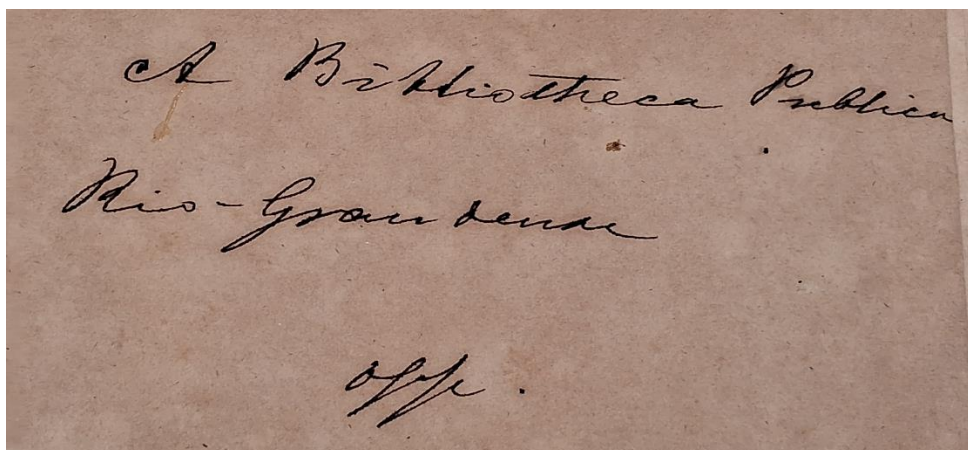 A Bibliotheca Publica
Rio-Grandense
off.